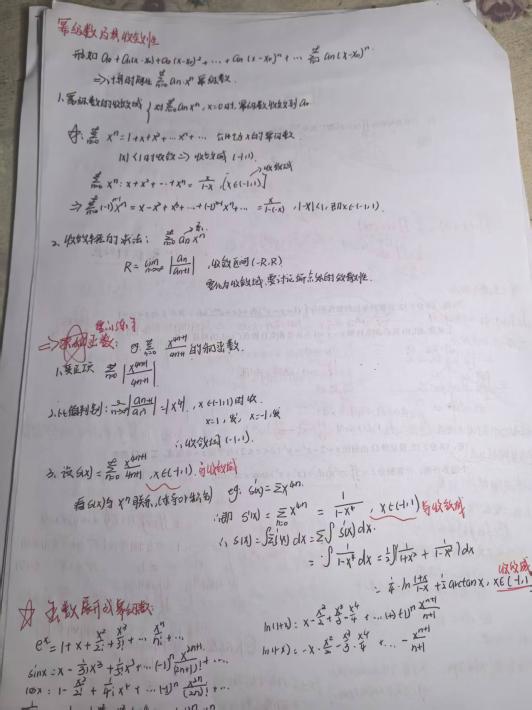 幂级数及其收敛性
形如 a₀+a₁(x-x₀)+a₂(x-x₀)²+…+aₙ(x-x₀)ⁿ+… ∑ aₙ(x-x₀)ⁿ
∑ aₙxⁿ 幂级数.
1. 幂级数的收敛域 { 对∑aₙxⁿ, x=0时, 幂级数收敛到a₀
∑ xⁿ=1+x+x²+…xⁿ+… x的幂级数
|x|<1时收敛 => 收敛域 (-1,1).
→收敛域
∑ xⁿ: x+x²+…+xⁿ= x/(1-x), [x∈(-1,1)]
=> ∑(-1)ⁿ⁻¹xⁿ = x-x²+x³+…+(-1)ⁿ⁻¹xⁿ+… = x/(1-(-x)), |-x|<1, 即x∈(-1,1).
2. 收敛半径的求法: ∑ aₙxⁿ
R= lim n→∞ |aₙ/aₙ₊₁|, 收敛区间(-R,R)
收敛域, 要讨论端点处的敛散性.
=> 和函数: ∑ n=0 x⁴ⁿ⁺¹/(4n+1) 的和函数.
1. 加正项 ∑ n=0 |x⁴ⁿ⁺¹/(4n+1)|
2. 比值判别: |aₙ₊₁/aₙ| = |x⁴|, x∈(-1,1)时收.
x=1, 发, x=-1, 发
∴收敛域 (-1,1).
3. 设S(x)= ∑ n=0 x⁴ⁿ⁺¹/(4n+1), x∈(-1,1). 与收敛域
看S(x)与xⁿ联系, eg: S'(x)=∑x⁴ⁿ.
∴即 S'(x)= ∑ n=0 x⁴ⁿ = 1/(1-x⁴), x∈(-1,1) 与收敛域
∴S(x)=∫S'(x)dx=∑∫S'(x)dx.
=∫ 1/(1-x⁴) dx = ½∫(1/(1+x²) + 1/(1-x²))dx
= ¼·ln (1+x)/(1-x) + ½arctanx, x∈(-1,1) 收敛域
☆ 函数展开成幂级数:
eˣ=1+x+x²/2!+x³/3!+…xⁿ/n!+…
ln(1+x): x-x²/2+x³/3-x⁴/4+…+(-1)ⁿ xⁿ⁺¹/(n+1)
sinx=x-1/3!x³+1/5!x⁵+…(-1)ⁿ x²ⁿ⁺¹/(2n+1)!+…
ln(1-x): -x-x²/2-x³/3-x⁴/4 +… -xⁿ⁺¹/(n+1)
cosx: 1-x²/2!+1/4!x⁴+…(-1)ⁿ x²ⁿ/(2n)!+…